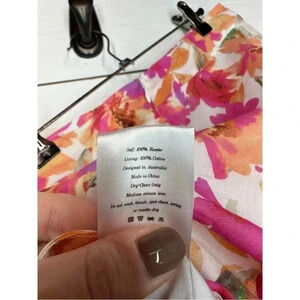 Self: 100% Ramie
Lining: 100% Cotton
Designed in Australia
Made in China
Dry-Clean Only
Medium steam iron
Do not soak, bleach, spot clean, wring
or tumble dry